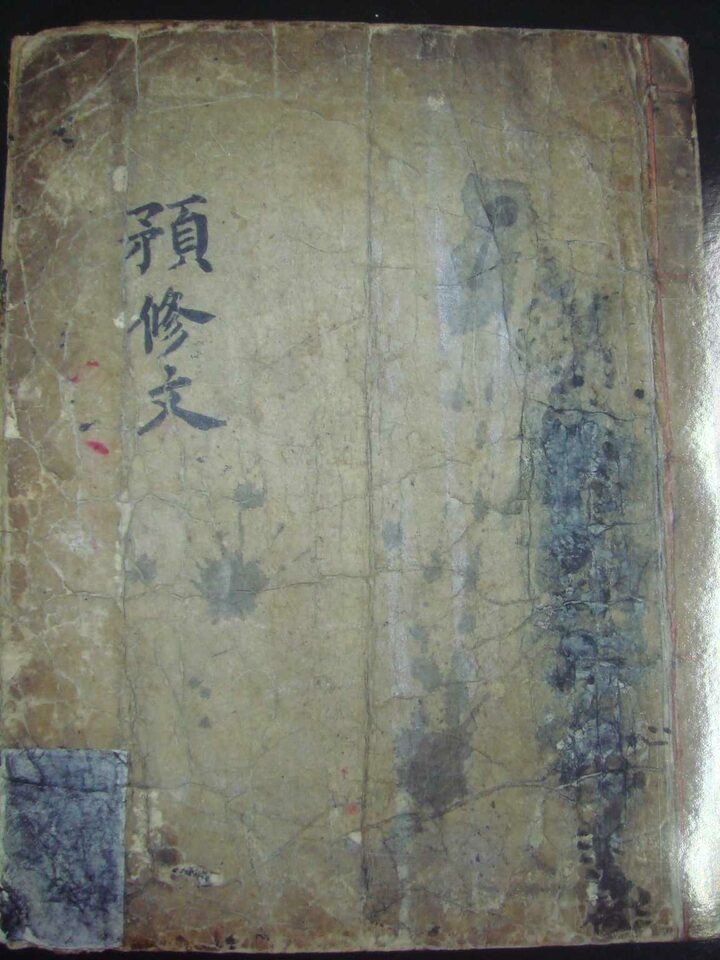 預修文